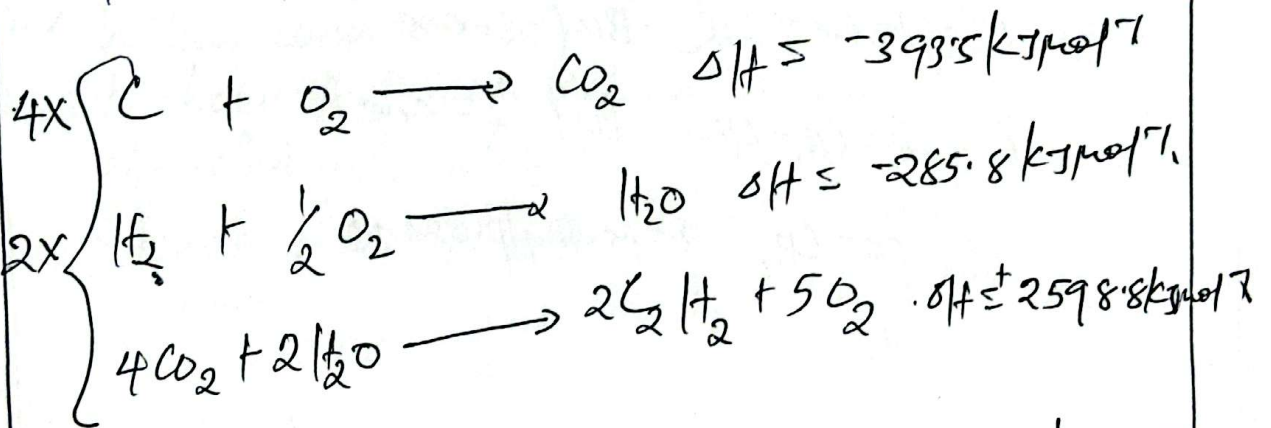 4x C + O₂ ⟶ CO₂ ΔH = -393.5 kJmol⁻¹
2x H₂ + ½ O₂ ⟶ H₂O ΔH = -285.8 kJmol⁻¹.
4CO₂ + 2H₂O ⟶ 2C₂H₂ + 5O₂ . ΔH = +2598.8kJmol⁻¹